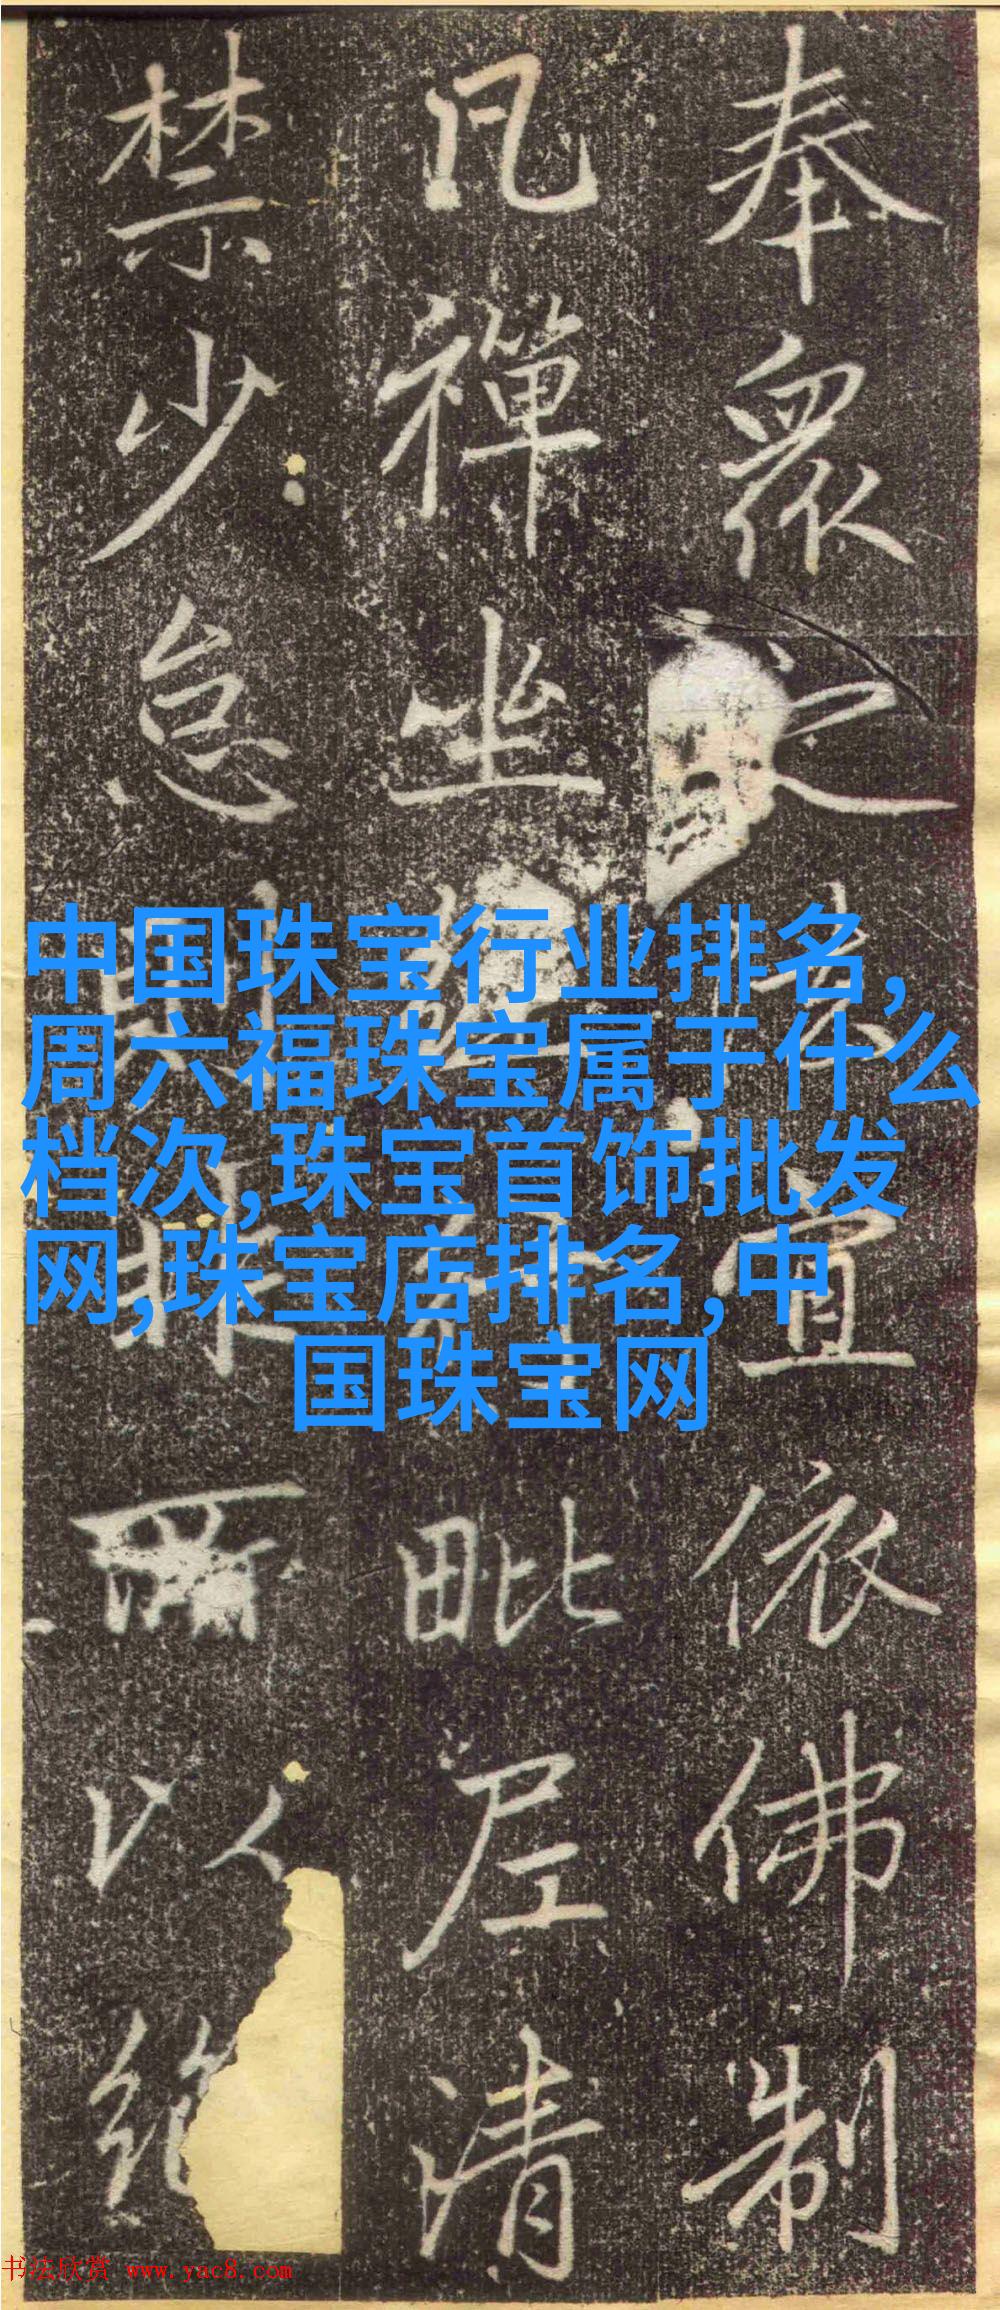 奉眾之宜依佛制
凡禪坐毗尼清
禁少怠則以絕
中国珠宝行业排名,
周六福珠宝属于什么
档次,珠宝首饰批发
网,珠宝店排名,中
国珠宝网
书法欣赏 www.yac8.com